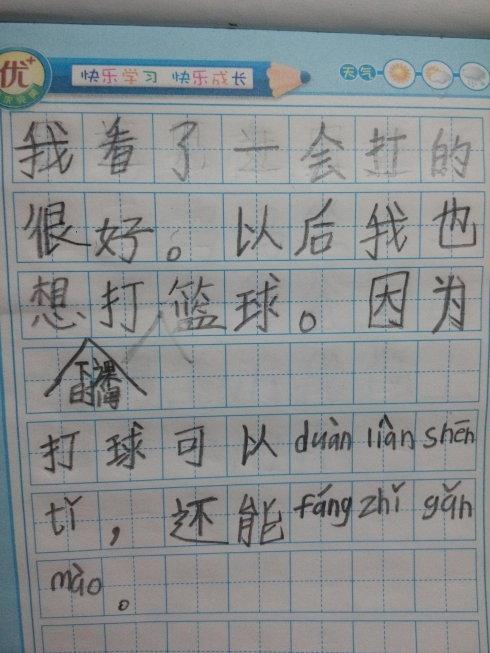 优+
快乐学习 快乐成长
天气
我看了一会打的
很好。以后我也
想打篮球。因为
下课
时间
打球可以duàn liàn shēn
tǐ，还能fáng zhǐ gǎn
mào。